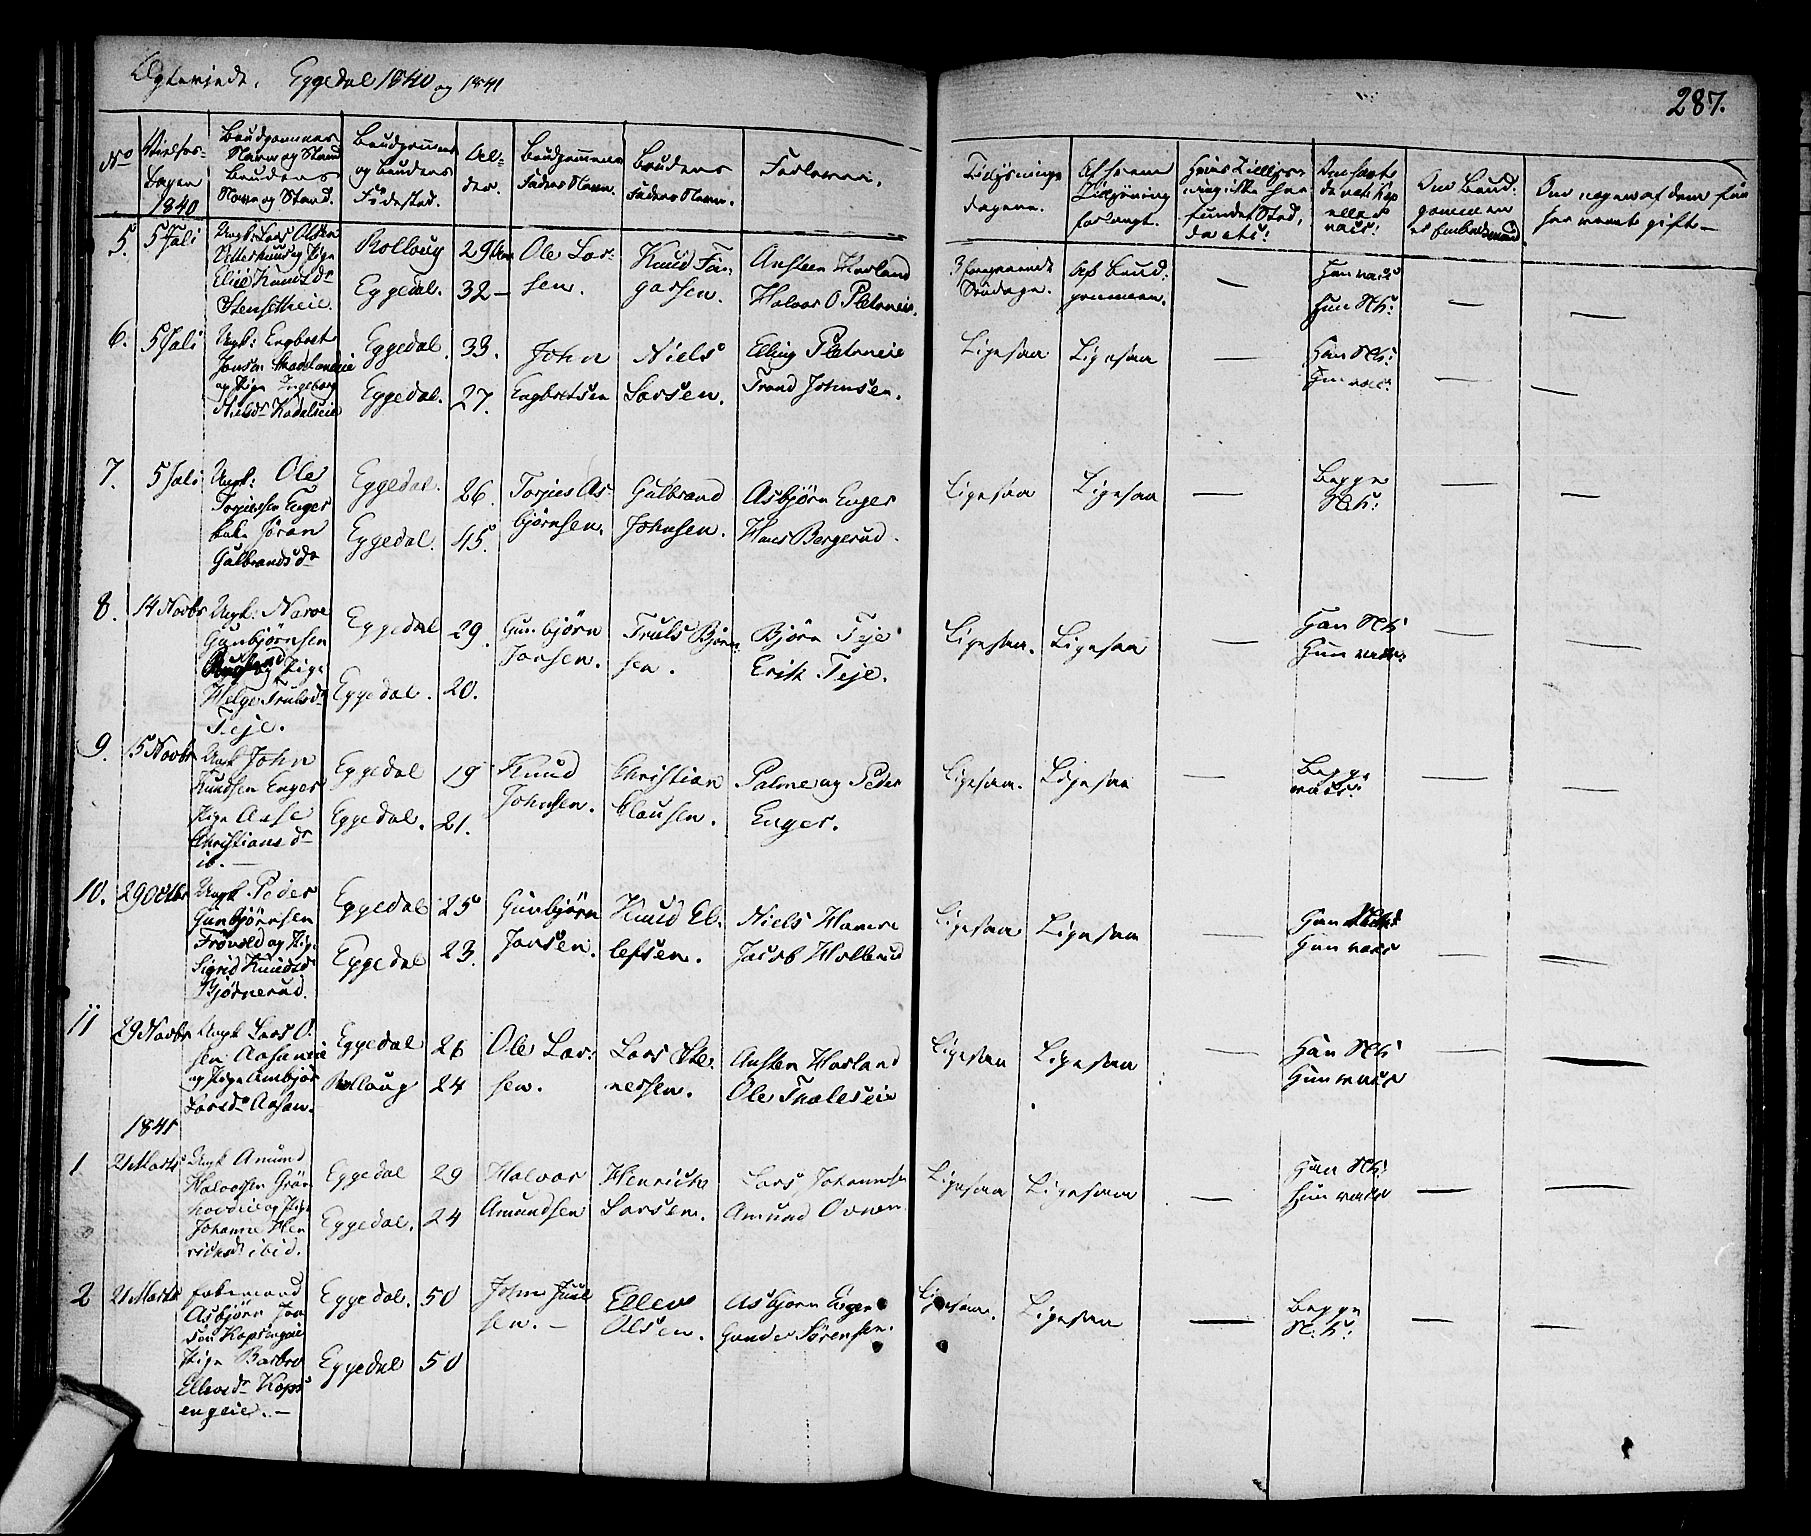 Egteviede. Eggedal 1840 og 1841
287.
No
Vielses-
Dagen
1840
Brudgommens
Navn og Stand
Brudens
Navn og Stand.
Brudgommens
og Brudens
Fødested.
Al-
der.
Brudgommens
Faders Navn.
Brudens
Faders Navn.
Forlovere.
Tillysnings
dagene.
Af hvem
Tillysning
forlangt.
Om nogen af dem før
har været gift.
5. 5 Juli
Ungk: Lars Olsen
og Pige
Knudsdr
Rollaug 29
Eggedal. 32
Ole Lar-
sen.
Knud
Ansteen Horland
Halvor O
3 foregaaende
Søndage.
Af Brud-
gommen.
Han vacc:
Hun N.K:
6. 5 Juli
Ungk: Engbret
Jonsen
og Pige Ingeborg
Nielsdr
Eggedal. 33.
Eggedal. 27.
John
Engbretsen
Niels
Larsen.
Elling
Trond Johnsen.
Ligesaa Ligesaa
Han N.K:
Hun vacc:
7. 5 Juli
Ungk: Ole
Torjussen Enger
Enke Jøran
Gulbrandsdr
Eggedal. 26.
Eggedal. 45.
Torjus As-
bjørnsen.
Gulbrand
Johnsen.
Asbjørn Enger
Hans Bergerud.
Ligesaa Ligesaa
Begge
N.K:
8. 14 Novbr
Ungk: Narve
Gunbjørnsen
og Pige
Helge Trulsdr
Teje.
Eggedal 29.
Eggedal. 20.
Gunbjørn
Jonsen.
Truls Bjørn-
sen.
Bjørn Teje
Erik Teje.
Ligesaa. Ligesaa
Han N.K:
Hun vacc:
9. 15 Novbr
Ungk John
Knudsen Enger
Pige Aase
Christiansdr
ib. —
Eggedal 19
Eggedal. 21.
Knud
Johnsen.
Christian
Clausen.
Palme og Peder
Enger.
Ligesaa. Ligesaa
Begge
vacc:
10. 29 Octbr
Ungk. Peder
Gunbjørnsen
Frøvold og Pige
Sigrid Knudsdr
Bjørnerud.
Eggedal 25
Eggedal 23.
Gunbjørn
Jonsen.
Knud El-
lefsen.
Niels Hamre
Jacob Holbrud
Ligesaa Ligesaa
Han
Hun vacc
11 29 Novbr
Ungk Lars O-
sen Aasaneie
og Pige Ambjør
Larsdr Aasan.
Eggedal 26
Rollaug 24
Ole Lar-
sen.
Lars Ste-
nersen.
Ansten Horland
Ole
Ligesaa Ligesaa
Han N.K:
Hun vacc
1841
1 21 Marts
Ungk Amund
Halvorsen Grøn-
hovdeie og Pige
Johanne Hen-
riksdr ibid.
Eggedal 29
Eggedal. 24
Halvor
Amundsen
Henrich
Larsen.
Lars Johannesen
Amund
Ligesaa Ligesaa
Han N.K:
Hun vacc
2 21 Marts
Enkemand
Asbjørn Jon-
sen Kopsengeie
Pige Barbro
Ellevsdr Kops-
engeie. —
Eggedal. 50
Eggedal 50
John Juel-
sen. —
Ellev
Olsen.
Asbjørn Enger
Gunder Sørensen.
Ligesaa. Ligesaa
Begge
N.K: